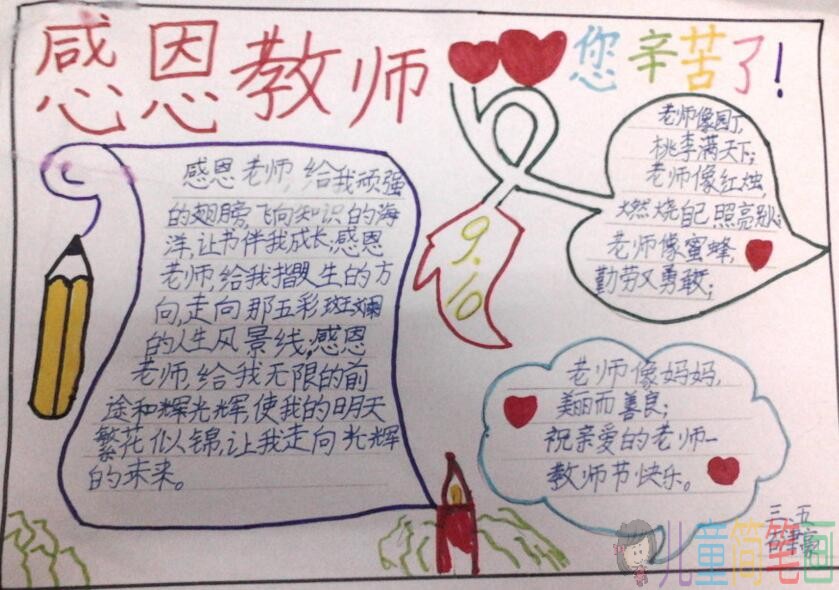 感恩教师
您辛苦了!
感恩老师,给我顽强
的翅膀,飞向知识的海
洋,让书伴我成长;感恩
老师,给我指人生的方
向,走向那五彩斑斓
的人生风景线;感恩
老师,给我无限的前
途和辉光辉,使我的明天
繁花似锦,让我走向光辉
的未来。
9.10
老师像园丁,
桃李满天下;
老师像红烛,
燃烧自己照亮别人;
老师像蜜蜂,
勤劳又勇敢;
老师像妈妈,
美丽而善良;
祝亲爱的老师—
教师节快乐。
三.五
儿童简笔画